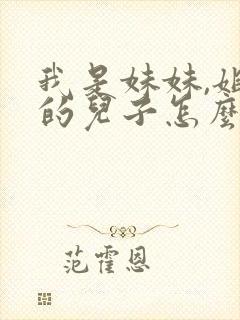 我是妹妹,姐
的兒子怎麼
范霍恩